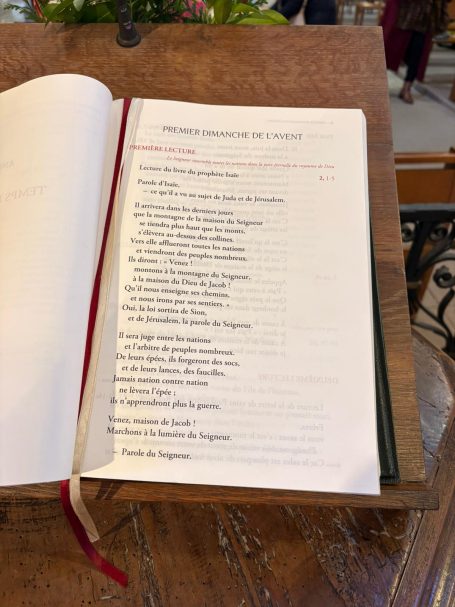 PREMIER DIMANCHE DE L'AVENT
PREMIÈRE LECTURE
Le Seigneur rassemble toutes les nations dans la paix éternelle du royaume de Dieu
Lecture du livre du prophète Isaïe 2, 1-5
Parole d'Isaïe,
– ce qu'il a vu au sujet de Juda et de Jérusalem.
Il arrivera dans les derniers jours
que la montagne de la maison du Seigneur
se tiendra plus haut que les monts,
s'élèvera au-dessus des collines.
Vers elle afflueront toutes les nations
et viendront des peuples nombreux.
Ils diront : « Venez !
montons à la montagne du Seigneur,
à la maison du Dieu de Jacob !
Qu'il nous enseigne ses chemins,
et nous irons par ses sentiers. »
Oui, la loi sortira de Sion,
et de Jérusalem, la parole du Seigneur.
Il sera juge entre les nations
et l'arbitre de peuples nombreux.
De leurs épées, ils forgeront des socs,
et de leurs lances, des faucilles.
Jamais nation contre nation
ne lèvera l'épée ;
ils n'apprendront plus la guerre.
Venez, maison de Jacob !
Marchons à la lumière du Seigneur.
– Parole du Seigneur.